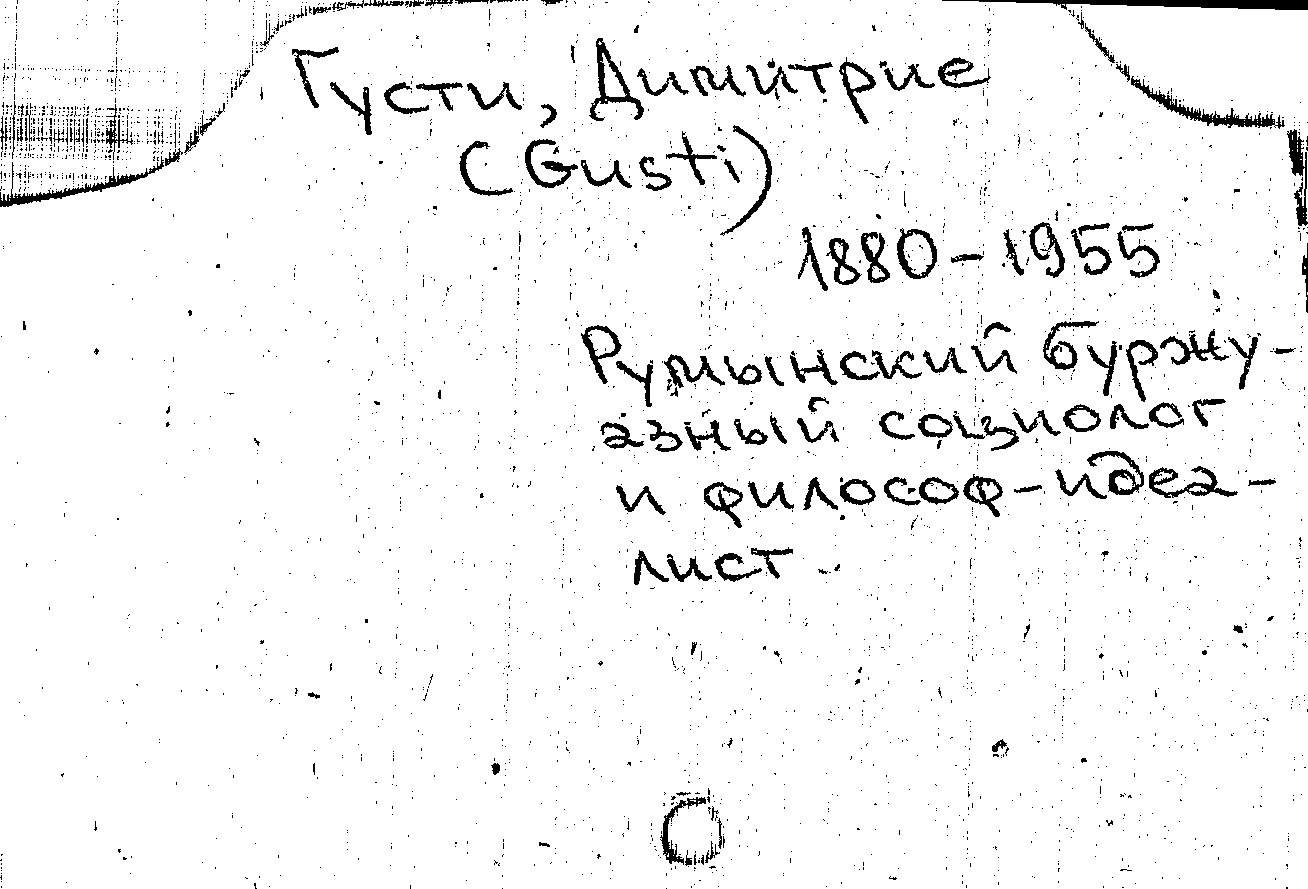 Густи, Димитрие
(Gusti)
1880-1955
Румынский буржу-
азный социолог
и философ-идеа-
лист.